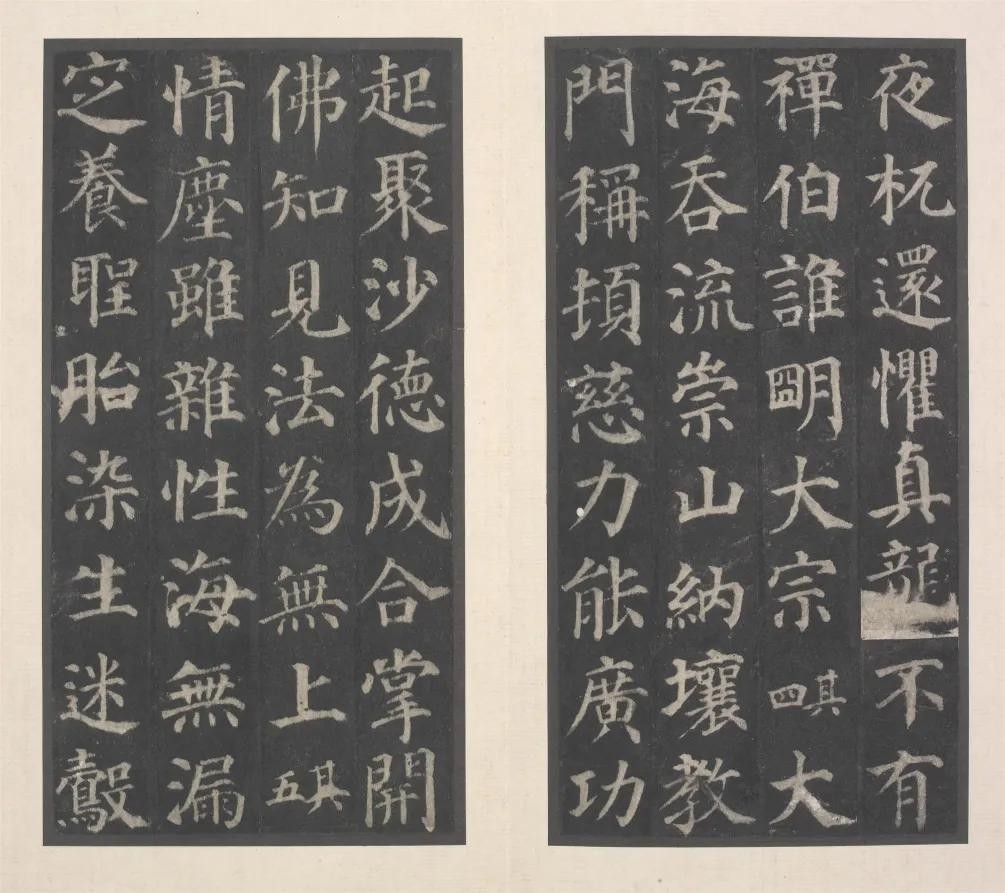 夜杌還懼真龍不有
禪伯誰明大宗其四大
海吞流崇山納壤教
門稱頓慈力能廣功
起聚沙德成合掌開
佛知見法為無上其五
情塵雖雜性海無漏
定養聖胎染生迷鷇